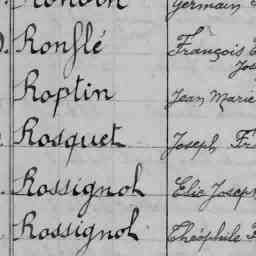 Germain
Ronflé François
Jos
Roptin Jean Marie
Rosquet Joseph Fr
Rossignol Elie Joseph
Rossignol Théophile F